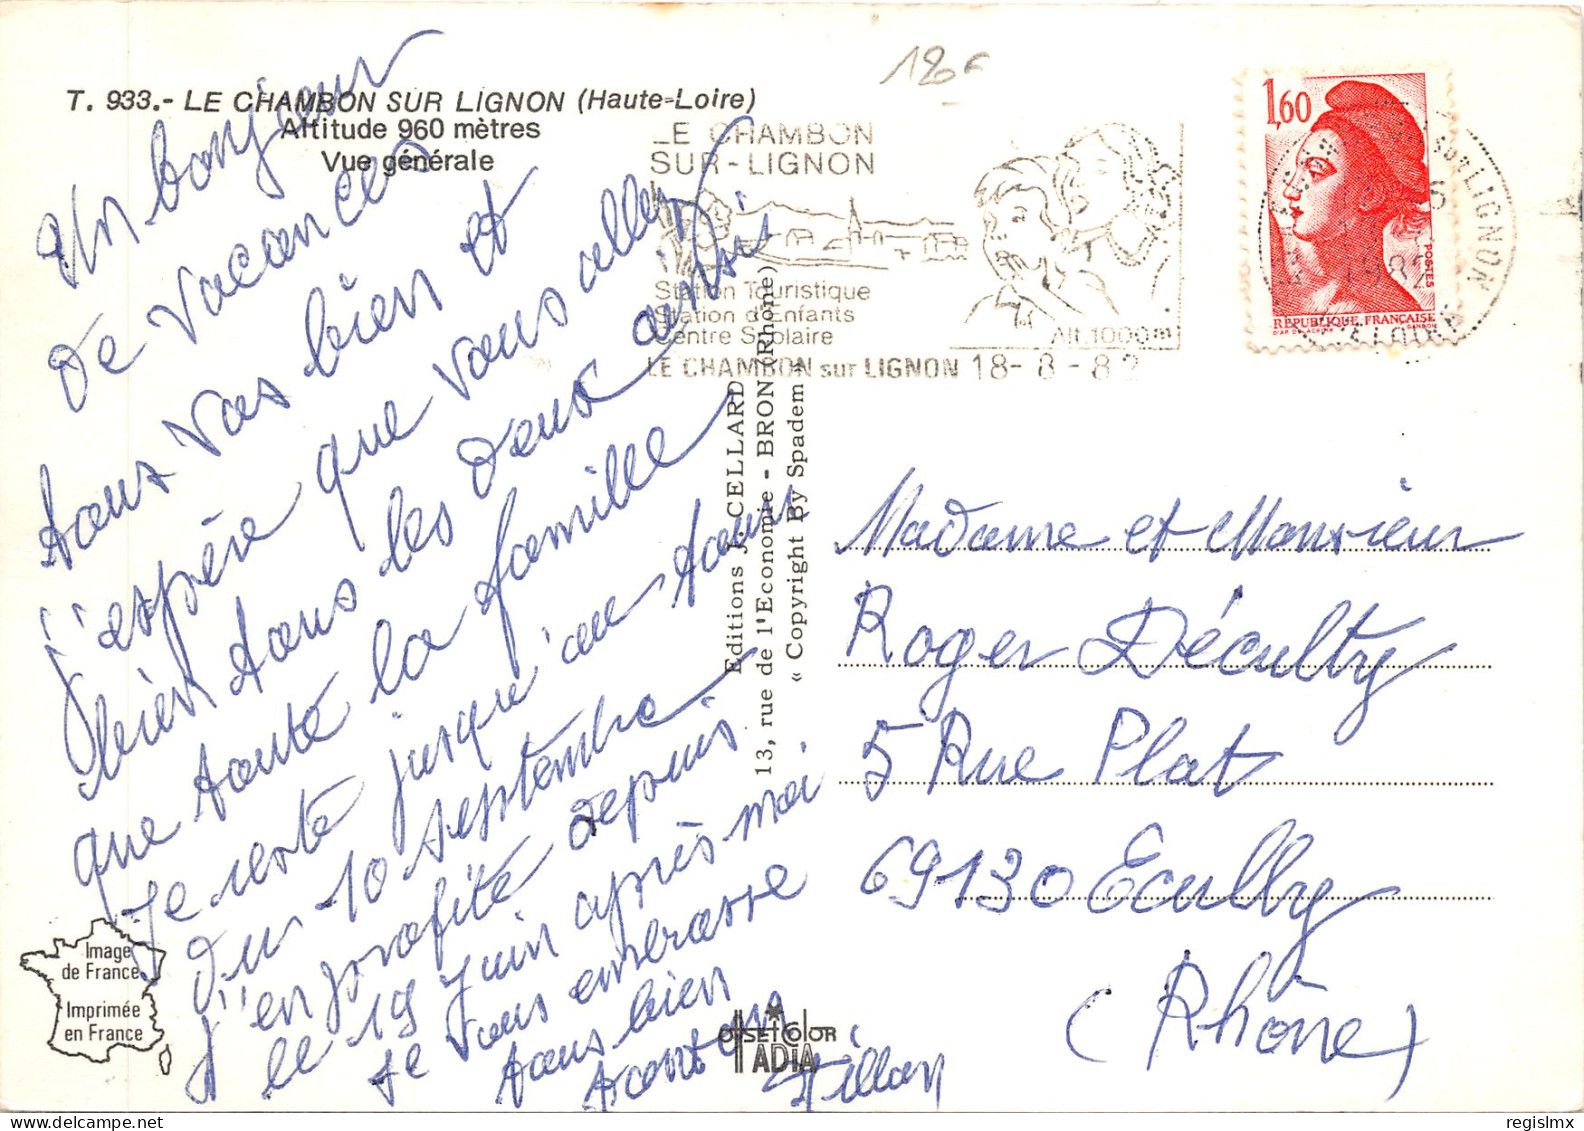 T. 933.- LE CHAMBON SUR LIGNON (Haute-Loire)
Altitude 960 mètres
Vue générale
12€
LE CHAMBON
SUR-LIGNON
Station Touristique
Station d'Enfants
Centre Scolaire
Alt.1000m
LE CHAMBON sur LIGNON 18-8-82
1,60
POSTES
REPUBLIQUE FRANÇAISE
D'AP. DELACROIX GANDON
1982
Un bonjour
de vacances
tous vas bien et
j'espère que vous allez
bien tous les deux ainsi
que toute la famille
Je reste jusqu'au tour
du 10 septembre
J'en profité depuis
le 19 Juin après moi
Je vous embrasse
tous bien
Tillon
Editions J. CELLARD
13, rue de l'Economie - BRON (Rhône)
« Copyright By Spadem »
Madame et Monsieur
Roger Décultry
5 Rue Plat
69130 Ecully
(Rhône)
Image
de France
Imprimée
en France
OFFSET COLOR
ADIA
regislmx
delcampe.net